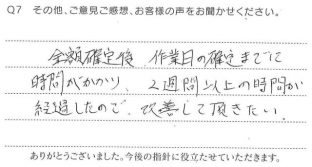 Q7 その他、ご意見ご感想、お客様の声をお聞かせください。
金額確定後 作業日の確定までに
時間がかかり、2週間以上の時間が
経過したので、改善して頂きたい。
ありがとうございました。今後の指針に役立たせていただきます。